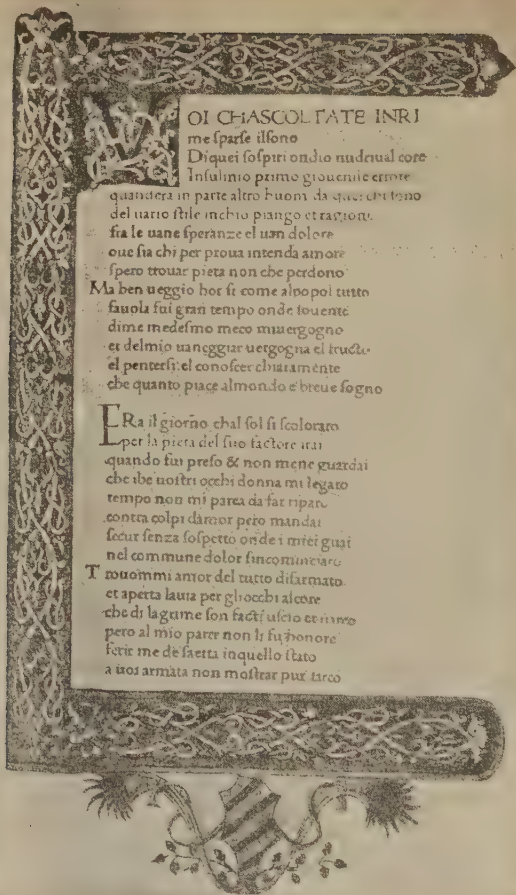 VOI CHASCOLTATE INRI
me sparse ilsono
Diquei sospiri ondio nudriual core
Insulmio primo giouenile errore
quandera in parte altro huom da quei chi sono
del uario stile inchio piango et ragiono
fra le uane speranze el uan dolore
oue sia chi per proua intenda amore
spero trouar pieta non che perdono
Ma ben ueggio hor si come alpopol tutto
fauola fui gran tempo onde souente
dime medesmo meco miuergogno
et delmio uaneggiar uergogna el fructo
el pentersi el conoscer chiaramente
che quanto piace almondo e breue sogno
ERa il giorno chal sol si scoloraro
per la pieta del suo factore irai
quando fui preso & non mene guardai
che ibe uostri occhi donna mi legaro
tempo non mi parea da far riparo
contra colpi damor pero mandai
secur senza sospetto onde i miei guai
nel commune dolor sincominciaro
Trouommi amor del tutto disarmato
et aperta lauia per gliocchi alcore
che di lagrime son facti uscio et
pero al mio parer non li fu honore
ferir me de saetta inquello stato
a uoi armata non mostrar pur larco